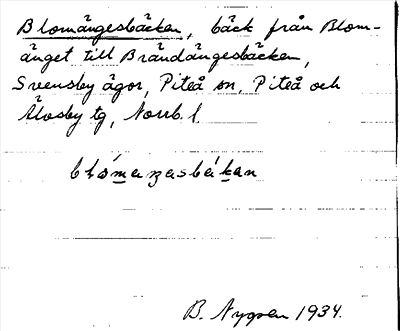 Blomängesbäcken, bäck från Blom-
änget till Brändängesbäcken,
Svensby ägor, Piteå sn, Piteå och
Älvsby tg, Norrb. l.
B. Nygren 1934.